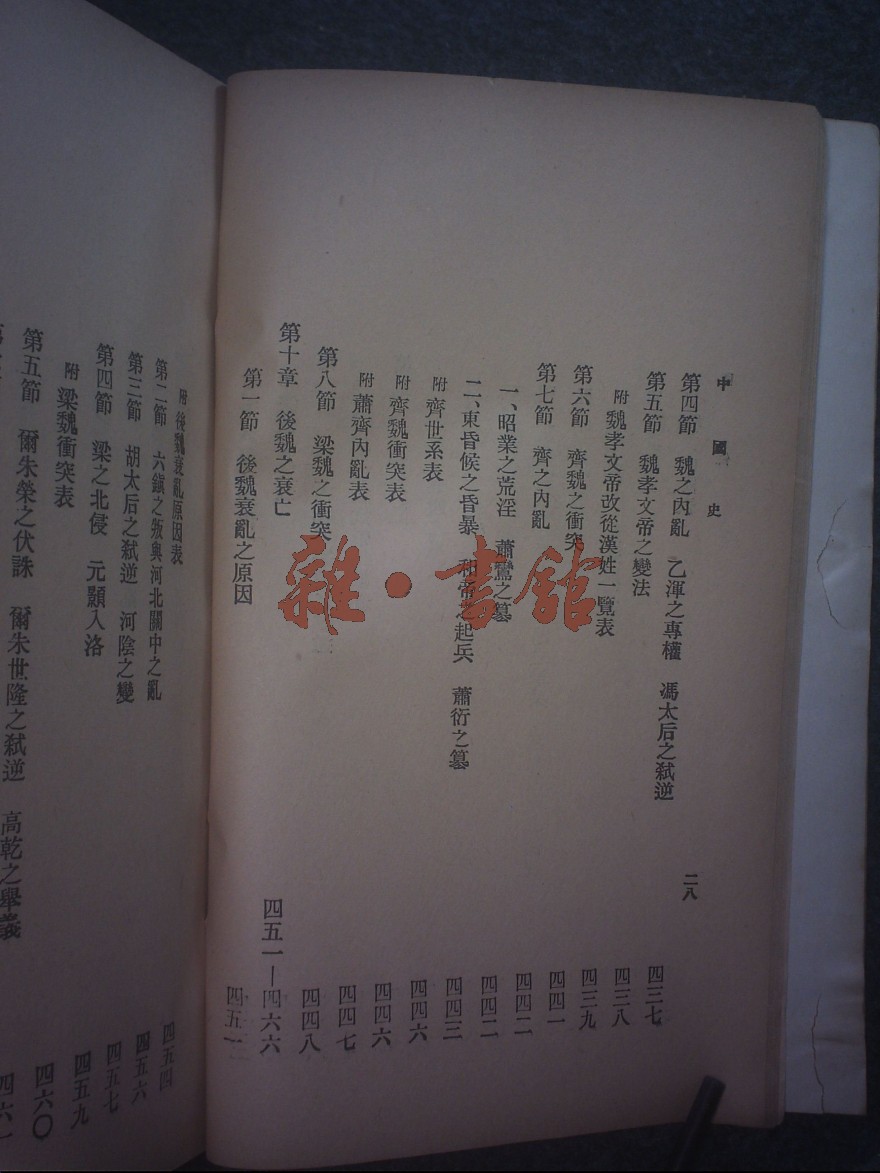 中國史
二八
第四節 魏之內亂 乙渾之專權 馮太后之弒逆 四三七
第五節 魏孝文帝之變法 四三八
附 魏孝文帝改從漢姓一覽表 四三九
第六節 齊魏之衝突 四四一
第七節 齊之內亂 四四二
一、昭業之荒淫 蕭鸞之篡 四四二
二、東昏候之昏暴 和帝之起兵 蕭衍之篡 四四三
附 齊世系表 四四六
附 齊魏衝突表 四四六
附 蕭齊內亂表 四四七
第八節 梁魏之衝突 四四八
第十章 後魏之衰亡 四五一—四六六
第一節 後魏衰亂之原因 四五一
附 後魏衰亂原因表 四五四
第二節 六鎮之叛與河北關中之亂 四五六
第三節 胡太后之弒逆 河陰之變 四五七
第四節 梁之北侵 元顥入洛 四五九
附 梁魏衝突表 四六〇
第五節 爾朱榮之伏誅 爾朱世隆之弒逆 高乾之舉義 四六一
雜·書館